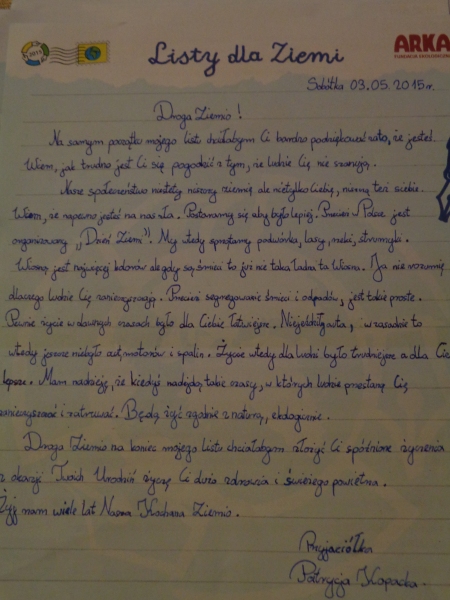 2015
Listy dla Ziemi
ARKA
FUNDACJA EKOLOGICZNA
Sobótka 03.05.2015r.
Droga Ziemio!
Na samym początku mojego listu chciałabym Ci bardzo podziękować za to, że jesteś.
Wiem, jak trudno jest Ci się pogodzić z tym, że ludzie Cię nie szanują.
Nasze społeczeństwo niestety niszczy ziemię ale nie tylko Ciebie, niszczy też siebie.
Wiem, że napewno jesteś na nas zła. Postaramy się aby było lepiej. Przecież w Polsce jest
organizowany ,,Dzień Ziemi". My wtedy sprzątamy podwórka, lasy, rzeki, strumyki.
Wiosną jest najwięcej kolorów ale gdy są śmieci to już nie taka ładna ta Wiosna. Ja nie rozumię
dlaczego ludzie Cię zanieczyszczają. Przecież segregowanie śmieci i odpadów, jest takie proste.
Pewnie życie w dawnych czasach było dla Ciebie łatwiejsze. Nie jeździły auta, w zasadzie to
wtedy jeszcze nie było aut, motorów i spalin. Życie wtedy dla ludzi było trudniejsze a dla Cie
lepsze. Mam nadzieję, że kiedyś nadejdą takie czasy, w których ludzie przestaną Cię
zanieczyszczać i zatruwać. Będą żyć zgodnie z naturą, ekologicznie.
Droga Ziemio na koniec mojego listu chciałabym złożyć Ci spóźnione życzenia
z okazji Twoich Urodzin życzę Ci dużo zdrowia i świeżego powietrza.
Żyj nam wiele lat Nasza Kochana Ziemio.
Przyjaciółka
Patrycja Kopacka